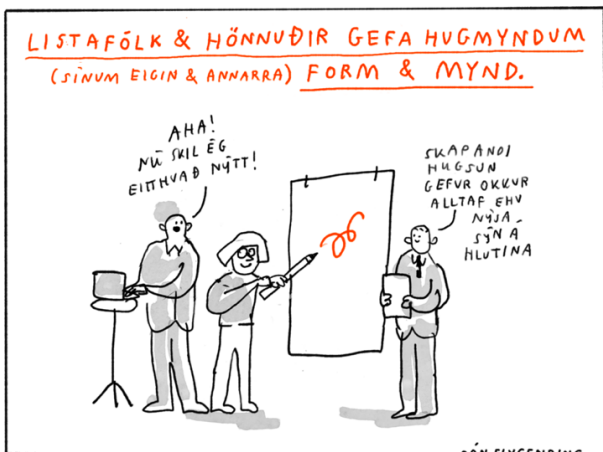 LISTAFÓLK & HÖNNUÐIR GEFA HUGMYNDUM
(SÍNUM EIGIN & ANNARRA) FORM & MYND.
AHA!
NÚ SKIL ÉG
EITTHVAÐ NÝTT!
SKAPANDI
HUGSUN
GEFUR OKKUR
ALLTAF EHV
NÝJA
SÝN Á
HLUTINA